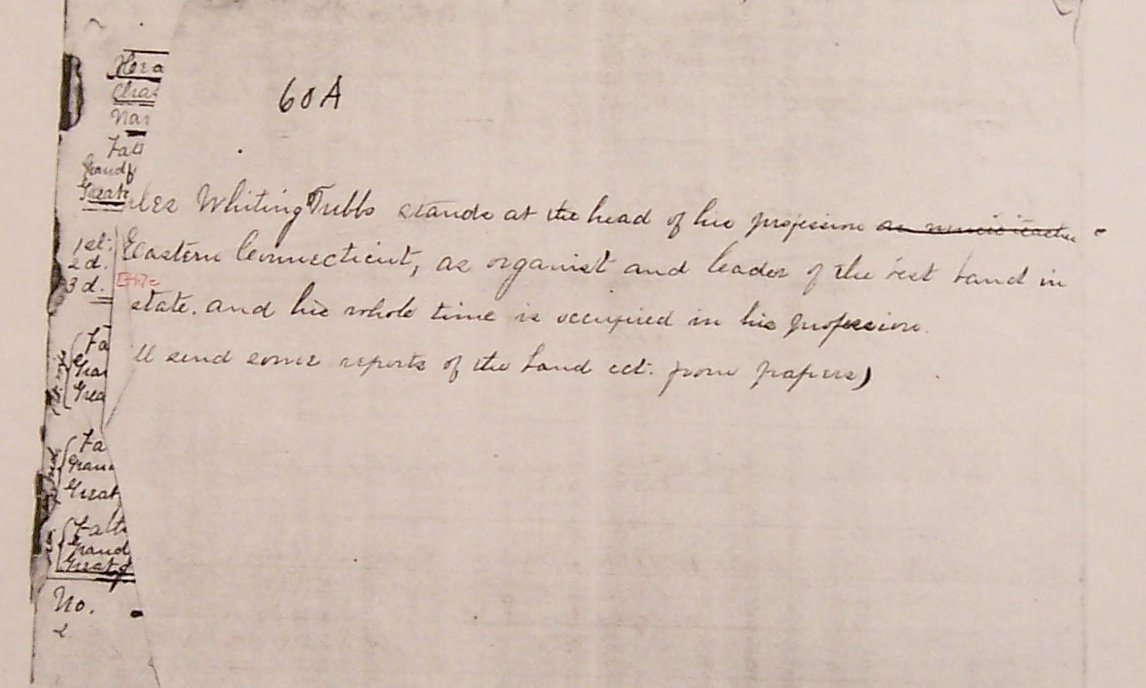 Hora
Chas
Nar
60A
Fatl
Grandf
Great
rles Whiting Tubbs stands at the head of his profession as music teacher
Eastern Connecticut, as organist and leader of the best band in
state. and his whole time is occupied in his profession.
ll send some reports of the band ect. from papers)
1st.
2d.
3d.
Fa
Gran
Grea
Fa
Gran
Great
Fath
Grand
Great g
No.